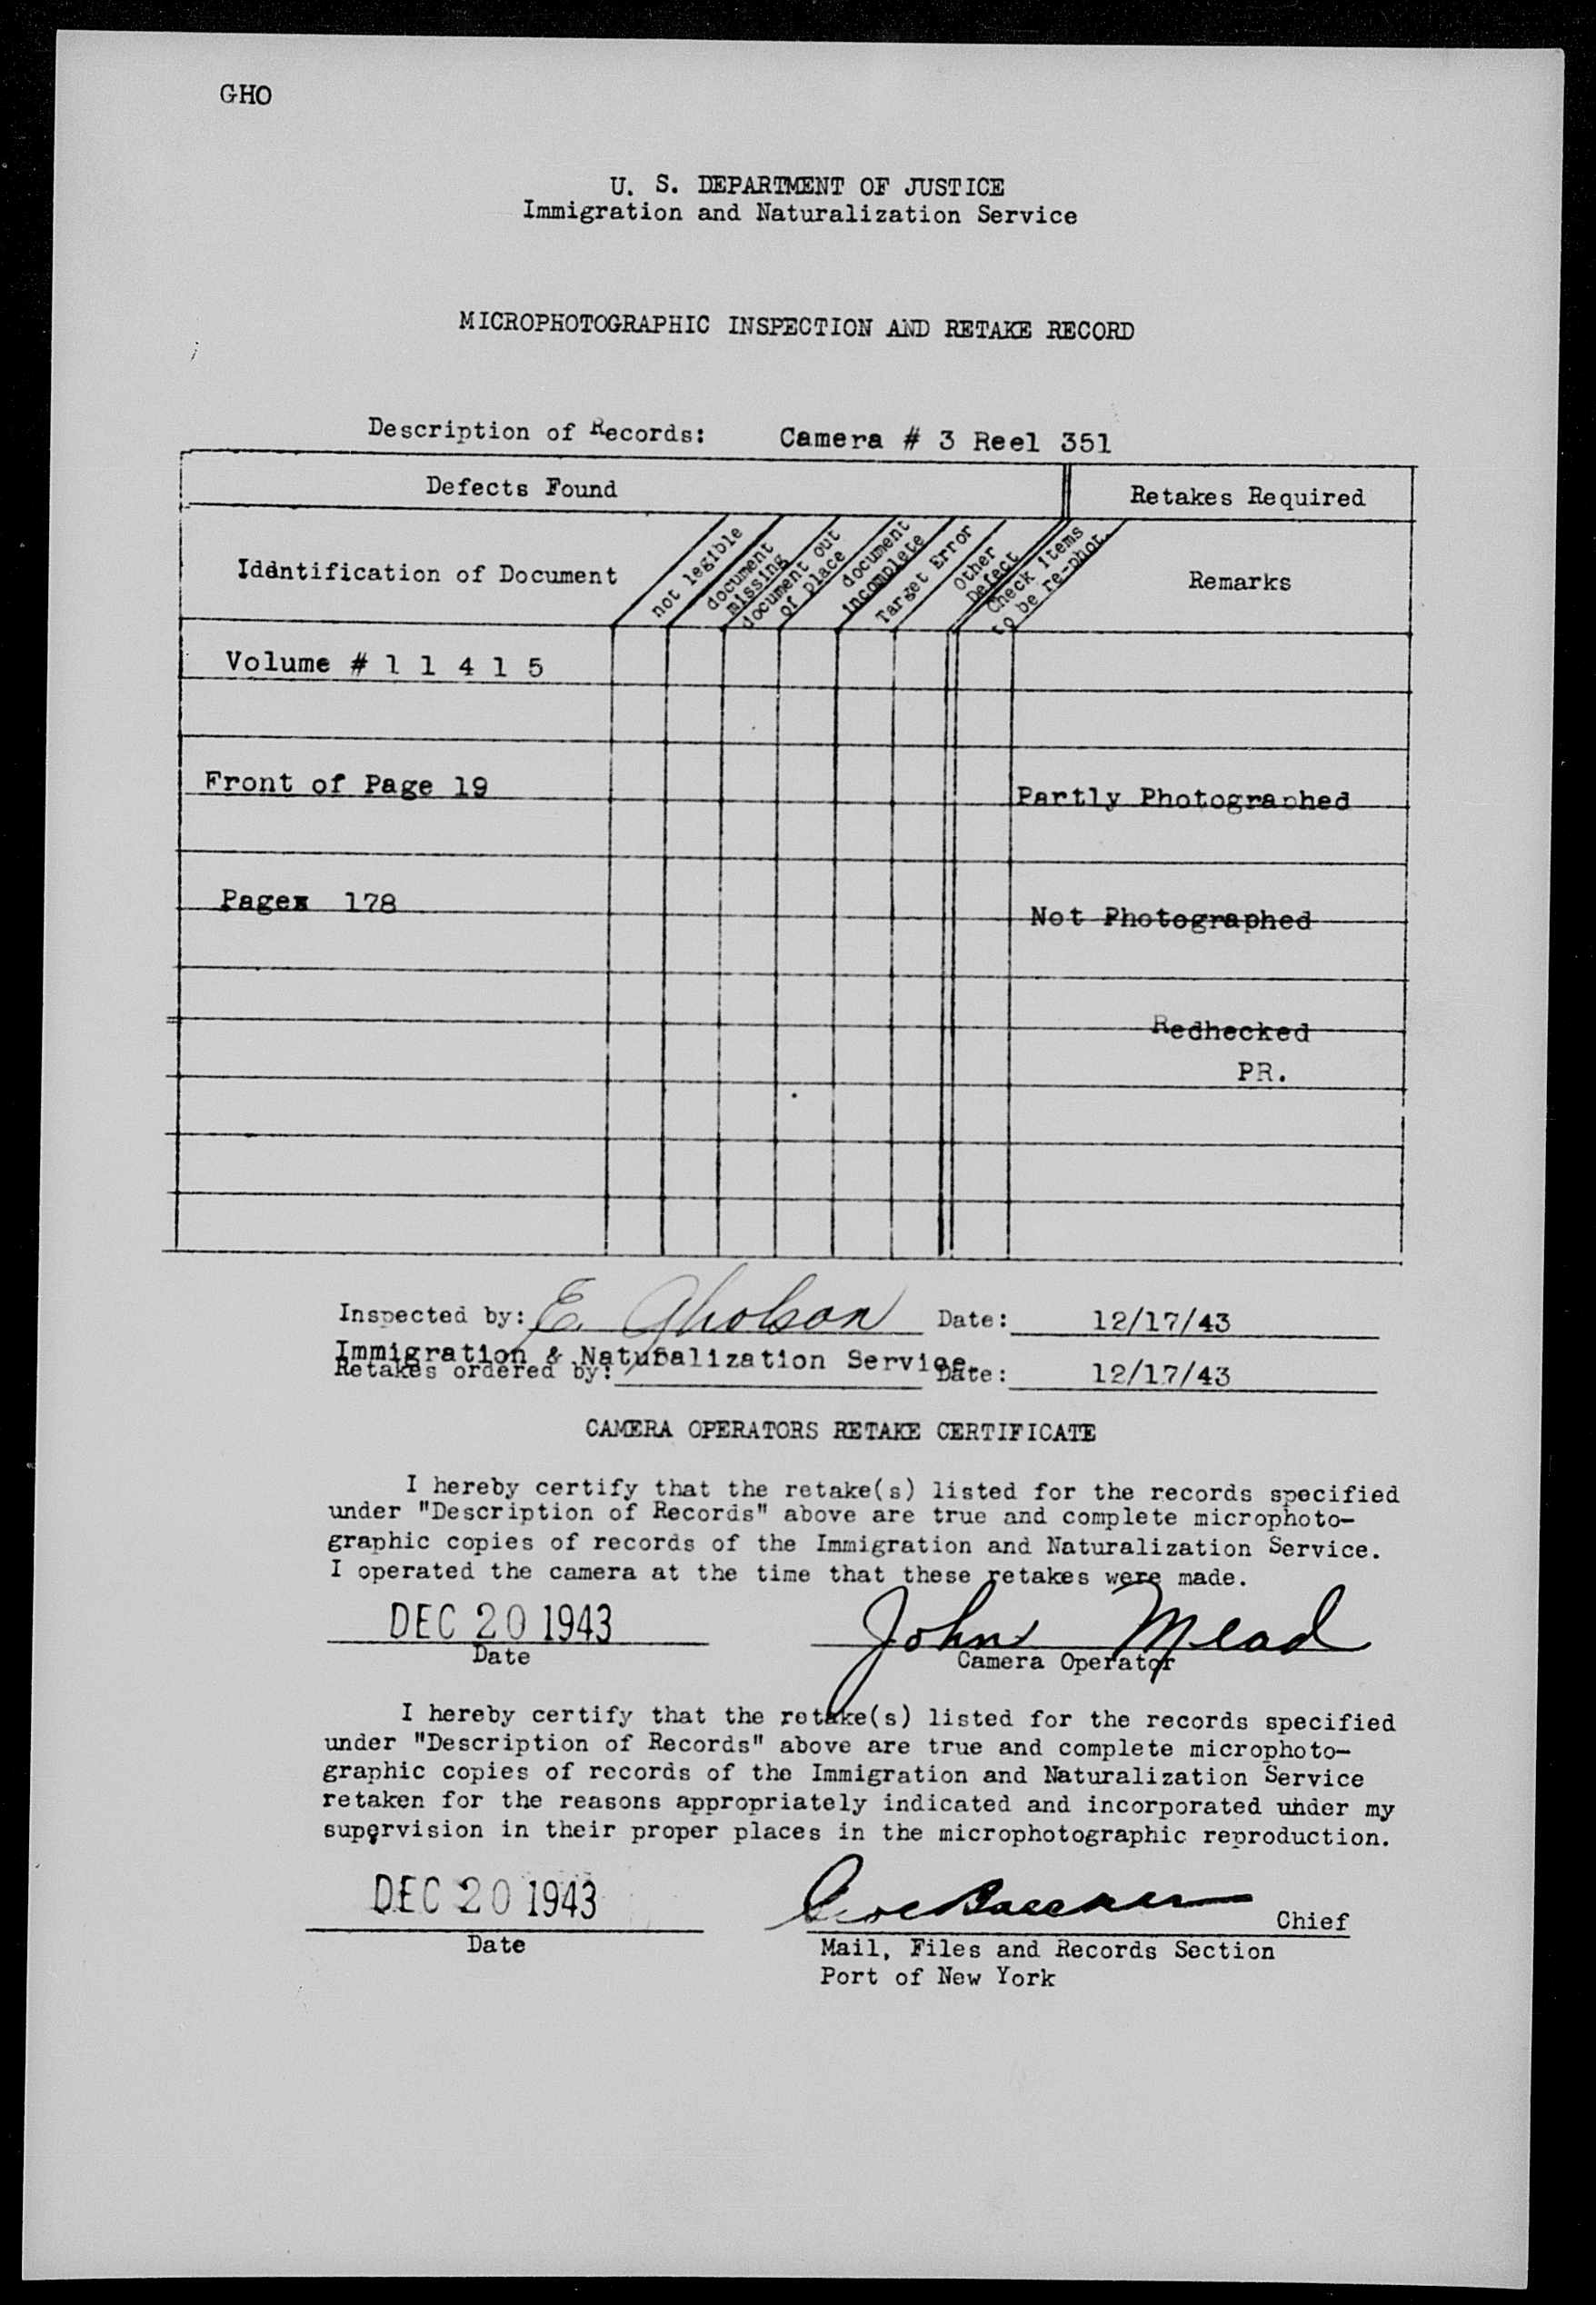 GHO
U. S. DEPARTMENT OF JUSTICE
Immigration and Naturalization Service
MICROPHOTOGRAPHIC INSPECTION AND RETAKE RECORD
Description of Records: Camera # 3 Reel 351
Defects Found
Retakes Required
Iddntification of Document
not legible
document missing
document out of place
document incomplete
Target Error
Other Defect
Check items to be re-phot.
Remarks
Volume # 1 1 4 1 5
Front of Page 19 Partly Photographed
Pagex 178 Not Photographed
Redhecked
PR.
Inspected by: E. Gholson Date: 12/17/43
Immigration & Naturalization Service.
Retakes ordered by: Date: 12/17/43
CAMERA OPERATORS RETAKE CERTIFICATE
I hereby certify that the retake(s) listed for the records specified
under "Description of Records" above are true and complete microphoto-
graphic copies of records of the Immigration and Naturalization Service.
I operated the camera at the time that these retakes were made.
DEC 20 1943 John Mead
Date Camera Operator
I hereby certify that the retake(s) listed for the records specified
under "Description of Records" above are true and complete microphoto-
graphic copies of records of the Immigration and Naturalization Service
retaken for the reasons appropriately indicated and incorporated under my
supervision in their proper places in the microphotographic reproduction.
DEC 20 1943 Chief
Date Mail, Files and Records Section
Port of New York